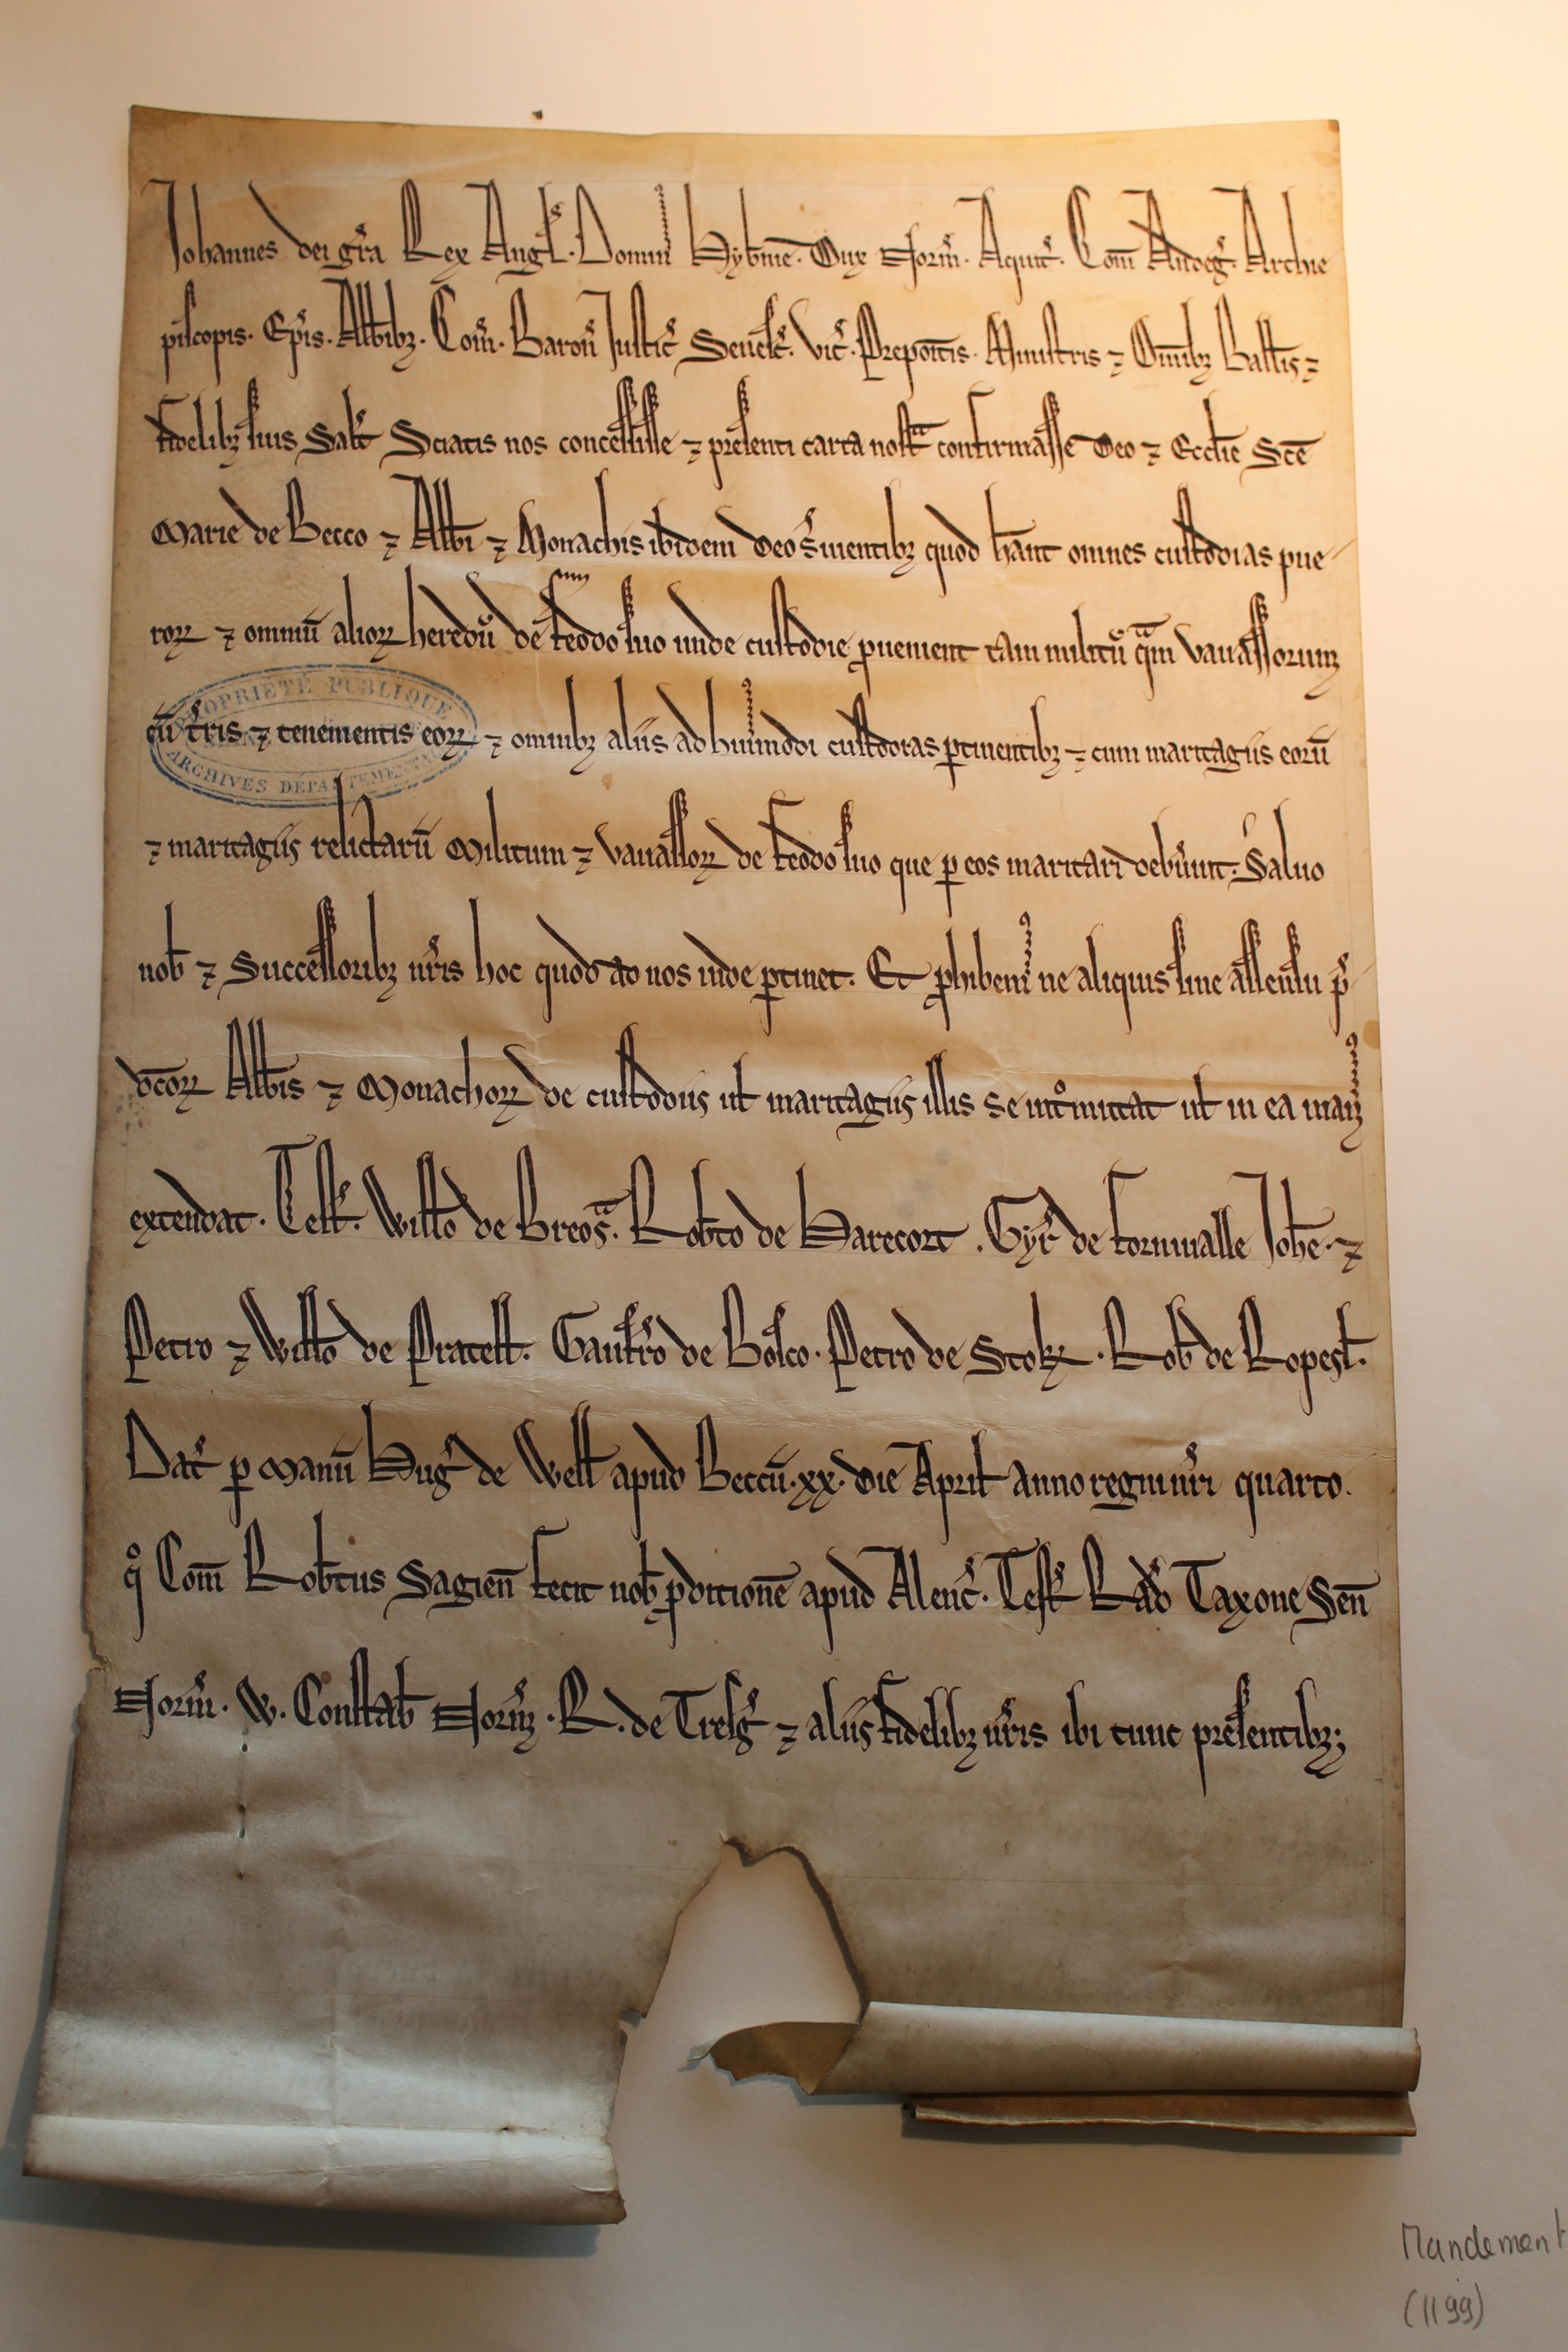 Johannes dei gr̃a Rex Angl̃. Domin᷒ Hyb̃nie. Dux Norm̃. Aquit̃. Com̃ Andeg̃. Archie
piscopis. Ep̃is. Abb̃ibꝫ. Com̃. Baroñ Justic̃ Senesc̃. Vic̃. Prepoĩtis. Ministris ⁊ Om̃ibꝫ Ball̃is ⁊
fidelibꝫ suis Sal̃t Sciatis nos concessisse ⁊ presenti carta nostᵃ confirmasse Deo ⁊ Eccl̃ie Sc̃e
Marie de Becco ⁊ Abb̃i ⁊ Monachis ibidem Deo s̃uientibꝫ quod h̃ant omnes custodias pue
roꝝ ⁊ omniũ alioꝝ heredũ de feodo suo unde custodie ꝓuenient tam militũ qᵃm Vauassorum
cũ t̃ris ⁊ tenementis eoꝝ ⁊ omnibꝫ aliis ad hui᷒modi custodias ꝑtinentibꝫ ⁊ cum maritagiis eorũ
PROPRIÉTÉ PUBLIQUE
ARCHIVES DÉPARTEMENTALES
⁊ maritagiis relictarũ Militum ⁊ Vauassoꝝ de feodo suo que ꝑ eos maritari deb̃unt. Saluo
nob̃ ⁊ Successoribꝫ nr̃is hoc quod ad nos inde ꝑtinet. Et ꝓhibem᷒ ne aliquis sine assensu p̃
dc̃oꝝ Abb̃is ⁊ Monachoꝝ de custodiis ul̃ maritagiis illis se intᵒmittat ul̃ in ea man᷒
extendat. Test̃. Will̃o de Breosᵃ. Rob̃to de Harecort. Gyr̃ de fornivalle Joh̃e. ⁊
Petro ⁊ Will̃o de Pratell̃. Gauf̃ro de Bosco. Petro de Stokꝭ. Rob̃ de Ropesl̃.
Dat̃ ꝑ Manũ Hug̃ de Well̃ apud Beccũ. xx. die April̃ anno regni nr̃i quarto.
qᵒ Com̃ Rob̃tus Sagieñ fecit nob̃ ꝓditionẽ apud Alenc̃. Test̃ Rad̃ Taxone Señ
Norm̃. W. Constab̃ Norm̃. R. de Tresg̃ ⁊ aliis fidelibꝫ nr̃is ibi tunc presentibꝫ;
Mandement
(1199)